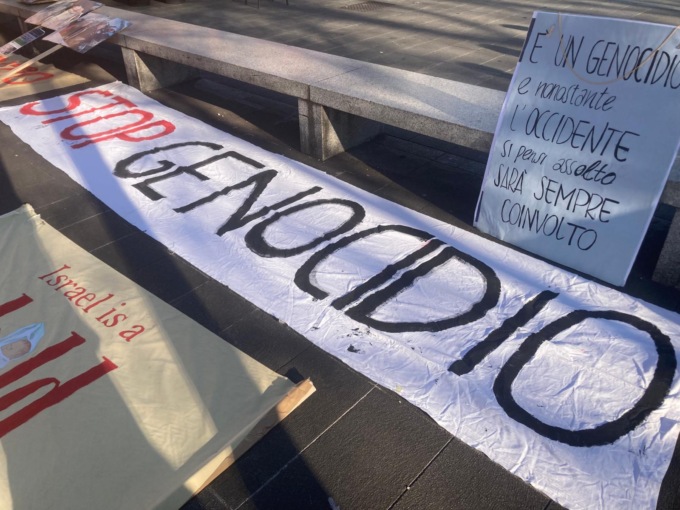 STOP GENOCIDIO
È UN GENOCIDIO
e nonostante
L'OCCIDENTE
si pensi assolto
SARÀ SEMPRE
COINVOLTO
Israel is a